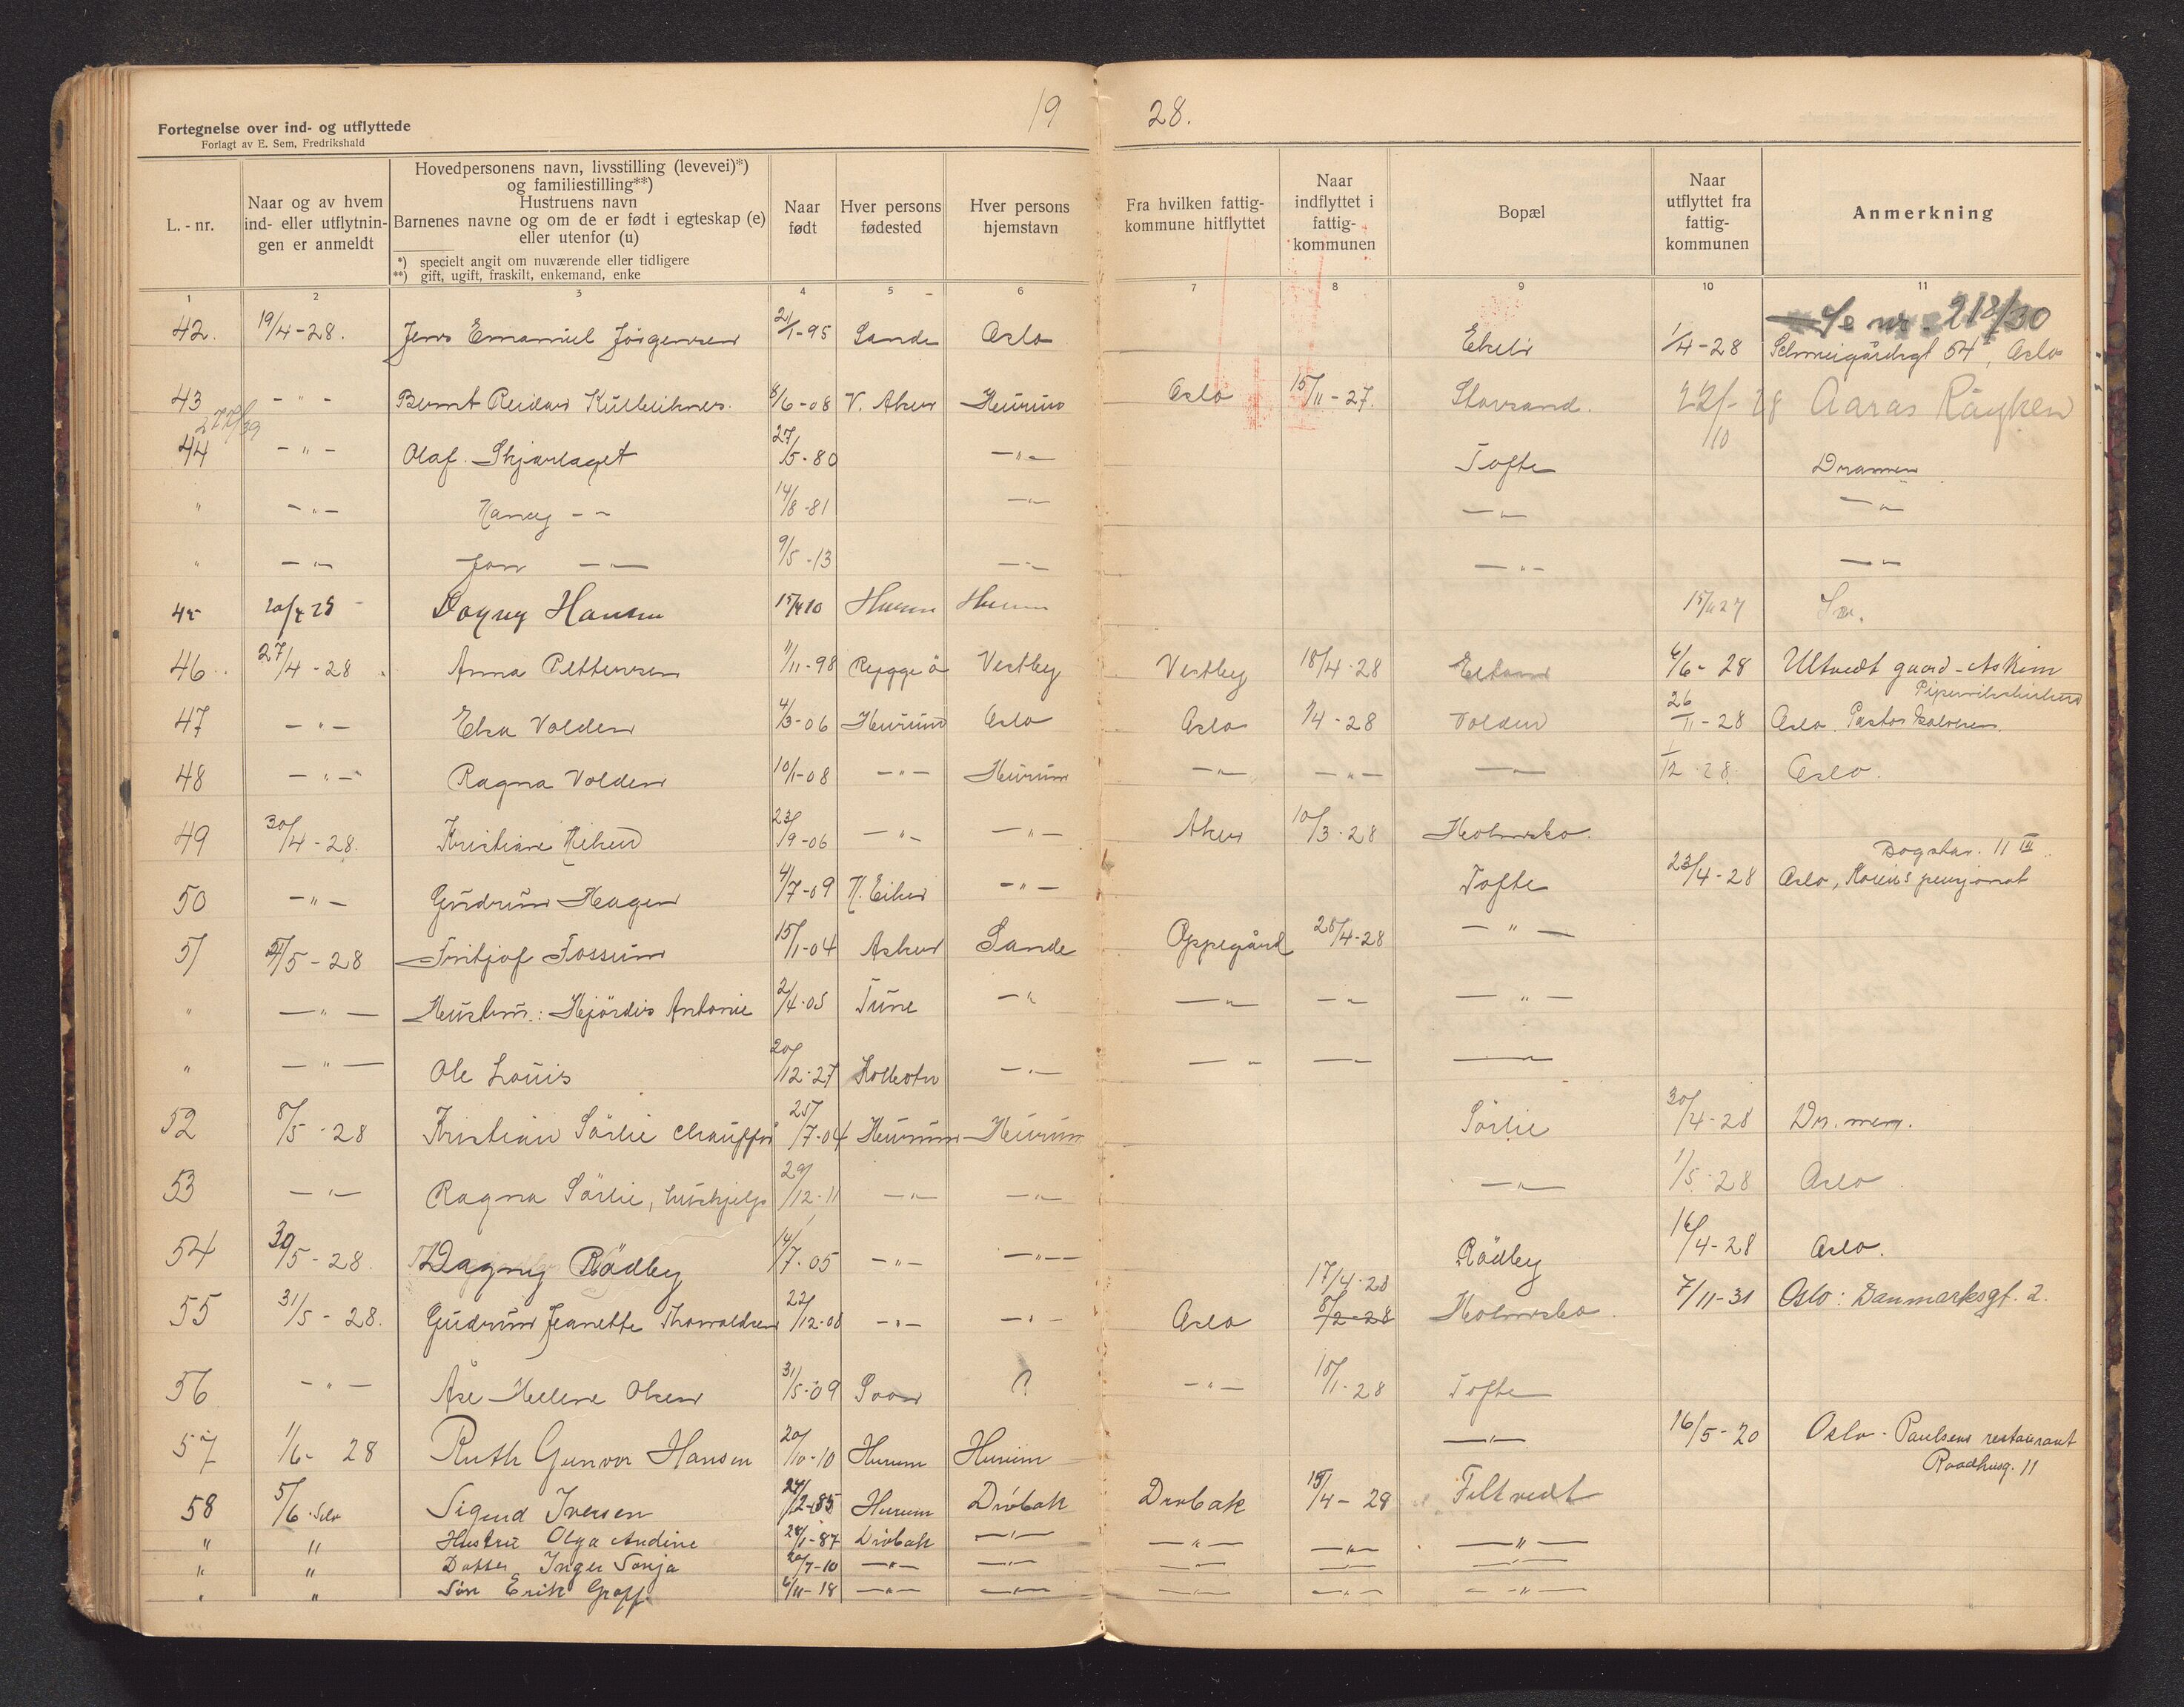 19 28.
Fortegnelse over ind- og utflyttede
Forlagt av E. Sem, Fredrikshald
L.-nr.
Naar og av hvem
ind- eller utflytnin-
gen er anmeldt
Hovedpersonens navn, livsstilling (levevei)*)
og familiestilling**)
Hustruens navn
Barnenes navne og om de er født i egteskap (e)
eller utenfor (u)
*) specielt angit om nuværende eller tidligere
**) gift, ugift, fraskilt, enkemand, enke
Naar
født
Hver persons
fødested
Hver persons
hjemstavn
Fra hvilken fattig-
kommune hitflyttet
Naar
indflyttet i
fattig-
kommunen
Bopæl
Naar
utflyttet fra
fattig-
kommunen
Anmerkning
1 2 3 4 5 6 7 8 9 10 11
Se nr. 212/30
42. 19/4-28. Jens Emanuel Jörgensen 2/1-95 Sande Oslo 1/4-28 54, Oslo
43 - " - Bernt Reidar 8/6-08 V. Aker Hurum Oslo 15/11-27. Storsand. 22/10-28 Aaras Røyken
277/39
44 - " - Olaf Skjærlaget 27/5-80 - " - Tofte Drammen
" - " - Nancy - - 14/8-81 - " - - " - - " -
" - " - Jon - " - 9/5-13 - " - - " - - " -
45 Dagny Hansen 15/4 10 Hurum Hurum
46 27/4-28 Anna Pettersen 1/11-98 Rygge Vestby Vestby 18/4-28 6/6-28 Ultvedt gaard - Askim
47 - " - Elsa Volden 4/3-06 Hurum Oslo Oslo 9/4-28 Volden 26/11-28 Oslo. Pastor
48 - " - Ragna Volden 10/1-08 - " - Hurum - " - - " - - " - 1/12-28 Oslo.
49 30/4-28. Kristiane 23/9-06 - " - - " - Aker 10/3-28 Holmsbo.
50 - " - Gudrun Hagen 4/7-09 N. Eiker - " - Tofte 23/4-28 Oslo, pensjonat
51 /5-28 Fritjof Fossum 15/1-04 Asker Sande Oppegård 28/4-28 - " -
" - " - Hustru: Hjördis Antonie 2/4-05 Tune - " - - " - - " - - " -
" - " - Ole Louis 20/12-27 Kolbotn - " - - " - - " - - " -
52 8/5-28 Kristian Sörlie chauffør 25/7-04 Hurum Hurum Sörlie 30/4-28 Dr.men.
53 - " - Ragna Sörlie, hushjelp 29/12-11 - " - - " - - " - 1/5-28 Oslo
54 30/5-28. Dagny Rödby 14/7-05 - " - - " - Rödby 16/4-28 Oslo.
17/4-28
55 31/5-28. Gudrun Jeanette Thorvaldsen 22/12-08 - " - - " - Oslo 8/2-28 Holmsbo. 7/11-31 Oslo: Danmarksgt. 2.
56 - " - Åse Helene Olsen 31/5-09 Soon ? - " - 10/1-28 Tofte
57 1/6-28 Ruth Gunvor Hansen 20/10-10 Hurum Hurum - " - 16/5-20 Oslo - Paulsens restaurant
Raadhusg. 11
58 5/6. Selv Sigurd Iversen 24/12-85 Hurum Dröbak Drøbak 15/4-28 Filtvedt
" " Hustru Olga Andine 28/1-87 Dröbak - " - - " - - " - - " -
" " Datter Inger Sonja 20/7-10 - " - - " - - " - - " - - " -
" " Sön Erik 6/11-18 - " - - " - - " - - " - - " -